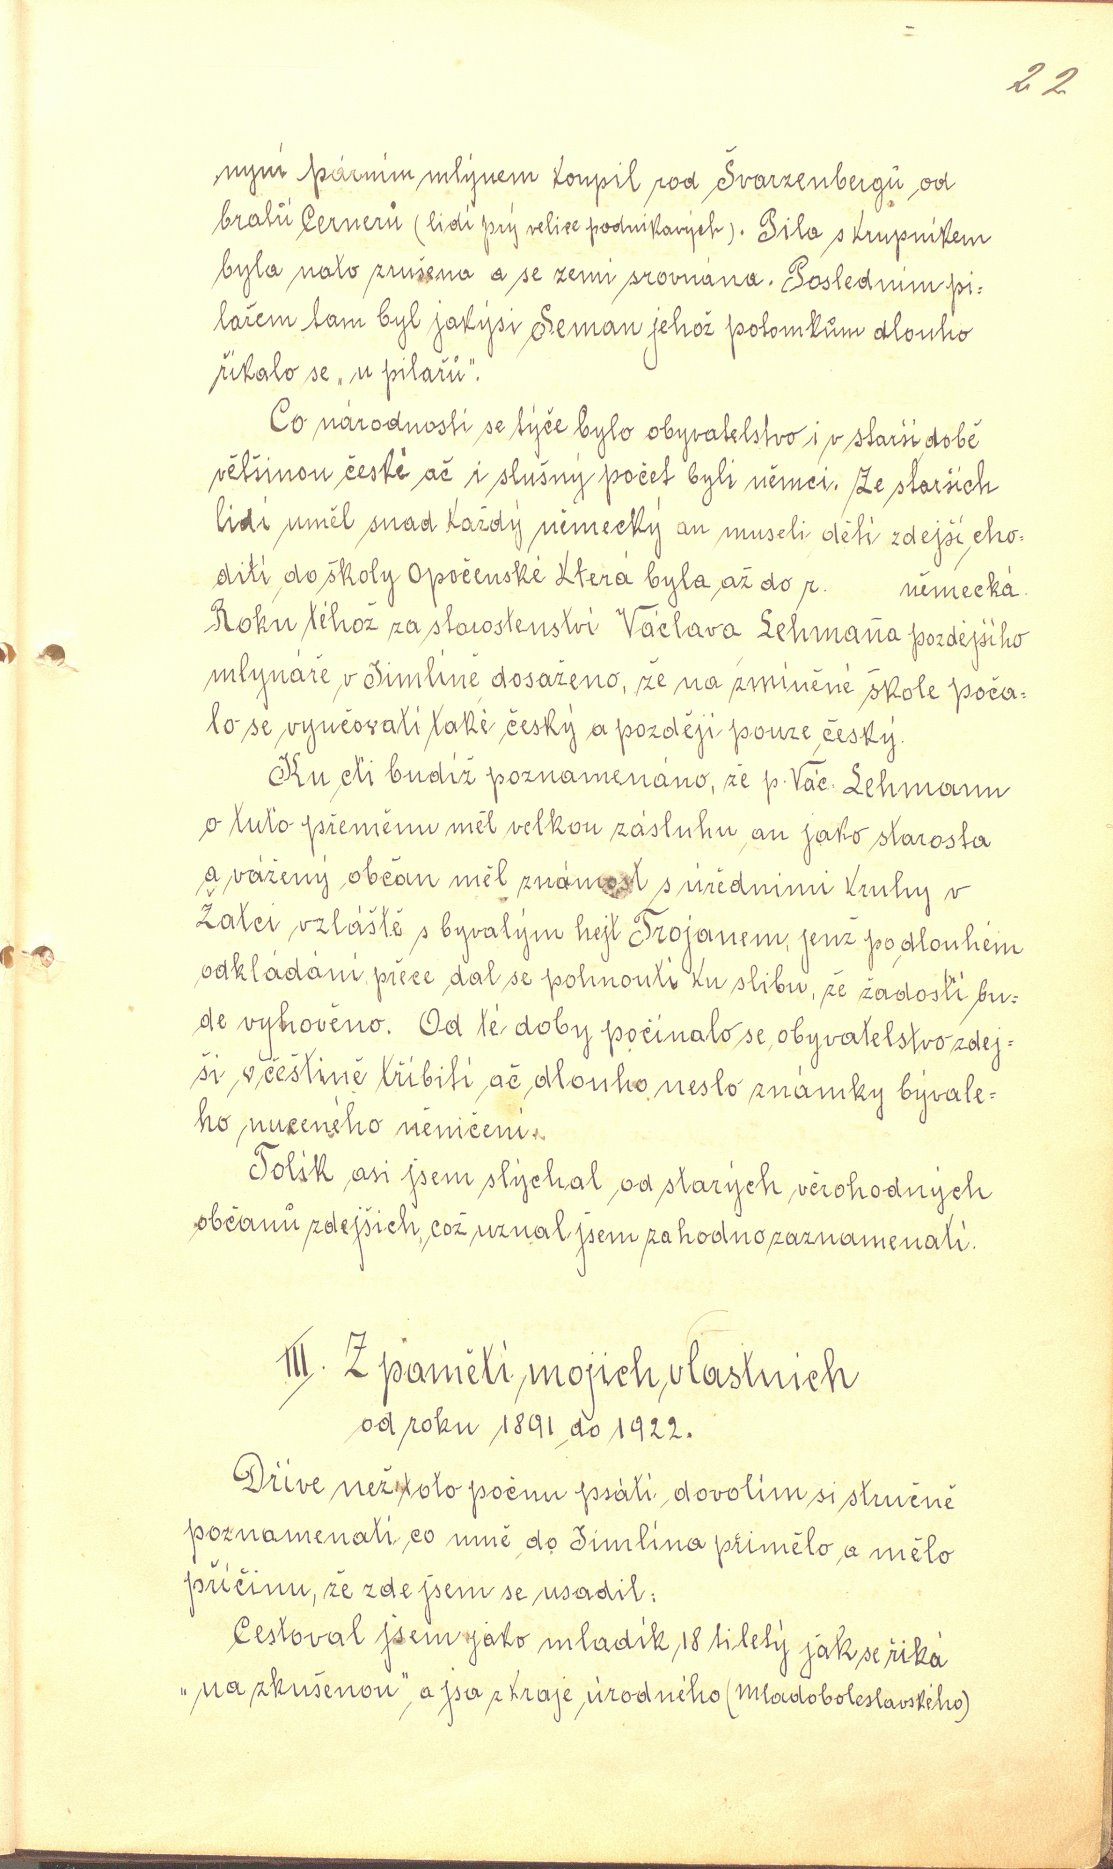 22
nyní párním mlýnem koupil rod Švarzenbergů od
bratří Cernerů (lidí prý velice podnikavých). Pila s krupníkem
byla nato zrušena a se zemí srovnána. Posledním pi=
lařem tam byl jakýsi Seman jehož potomkům dlouho
říkalo se „u pilařů".
Co národnosti se týče bylo obyvatelstvo i v starší době
většinou české ač i slušný počet byli němci. Ze starších
lidí uměl snad každý německý an museli děti zdejší cho=
diti do školy Opočenské která byla až do r. německá.
Roku téhož za starostenství Václava Lehmaňa pozdějšího
mlynáře v Jimlíně dosaženo, že na zmíněné škole poča=
lo se vyučovati také český a později pouze český.
Ku cti budiž poznamenáno, že p. Vác. Lehmann
o tuto přeměnu měl velkou zásluhu an jako starosta
a vážený občan měl známost s úředními kruhy v
Žatci vzláště s byvalým hejt Trojanem, jenž po dlouhém
odkládání přece dal se pohnouti ku slibu, že žádosti bu=
de vyhověno. Od té doby počínalo se obyvatelstvo zdej=
ší v češtině tříbiti ač dlouho neslo známky bývale=
ho nuceného němčení.
Tolik asi jsem slýchal od starých věrohodných
občanů zdejších, což uznal jsem za hodno zaznamenati.
III. Z paměti mojich vlastních
od roku 1891 do 1922.
Dříve než toto počnu psáti dovolím si stručně
poznamenati co mně do Jimlína přimělo a mělo
příčinu, že zde jsem se usadil:
Cestoval jsem jako mladík 18 tiletý jak se říká
„na zkušenou" a jsa z kraje úrodného (Mladoboleslavského)